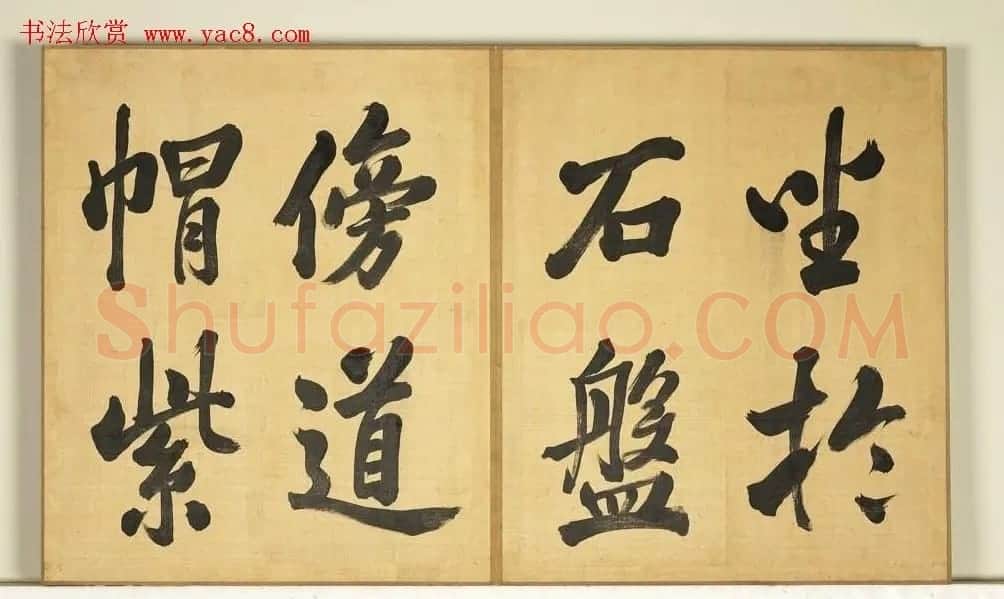 书法欣赏 www.yac8.com
坐於
石盤
傍道
帽紫
Shufaziliao.COM